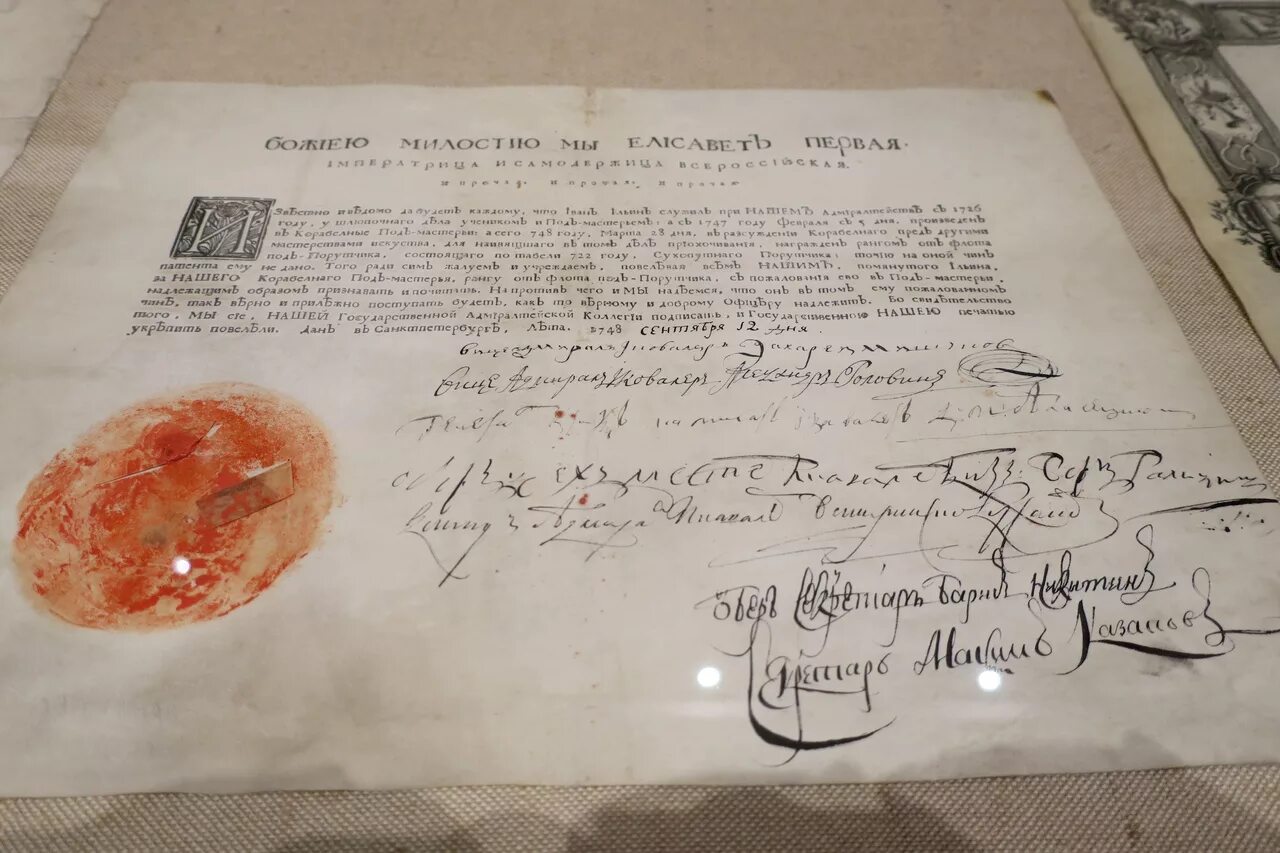 БОЖІЕЮ МИЛОСТІЮ МЫ ЕЛІСАВЕТЪ ПЕРВАЯ.
ІМПЕРАТРИЦА И САМОДЕРЖИЦА ВСЕРОССІЙСКАЯ.
И ПРОЧАЯ, И ПРОЧАЯ, И ПРОЧАЯ
ИЗвѣстно и вѣдомо да будетъ каждому, что Іванъ Ільинъ служилъ при НАШЕМЪ Адміралтействѣ съ 1726
году, у шлюпочного дѣла ученикомъ и Подъ-мастерьемъ; а съ 1747 году Февраля съ 5 дня, произведенъ
въ Корабелные Подъ-мастерьи; а сего 748 году, Марта 28 дня, въ разсужденіи Корабелнаго предъ другими
мастерствами искуства, для наивящшаго въ томъ дѣлѣ пріохочиванія, награжденъ рангомъ отъ флота
подъ-Порутчика, состоящаго по табели 722 году, Сухопутнаго Порутчика; точію на оной чинъ
патента ему не дано. Того ради симъ жалуемъ и учреждаемъ, повелѣвая всѣмъ НАШИМЪ, помянутого Ільина,
за НАШЕГО Корабелного Подъ-мастерья, рангу отъ флота подъ-Порутчика, съ пожалованія ево въ Подъ-мастерьи,
надлежащимъ образомъ признавать и почитать. Напротивъ чего и МЫ надѣемся, что онъ въ томъ ему пожалованномъ
чинѣ, такъ вѣрно и прилѣжно поступать будетъ, какъ то вѣрному и доброму Офіцѣру надлежитъ. Во свидѣтельство
того, МЫ сіе, НАШЕЙ Государственной Адміралтейской Коллегіи подписать, и Государственною НАШЕЮ печатью
укрѣпить повелѣли. Данъ въ Санктпетербургѣ, Лѣта. 1748 сентября 12 дня.
вице адмиралъ і ковалеръ Захаре Мишуковъ
Вице Адмиралъ і Ковалеръ Александръ Головинъ
Оберъ Секретарь Борисъ Никитинъ
Секретарь Максимъ Казанцовъ